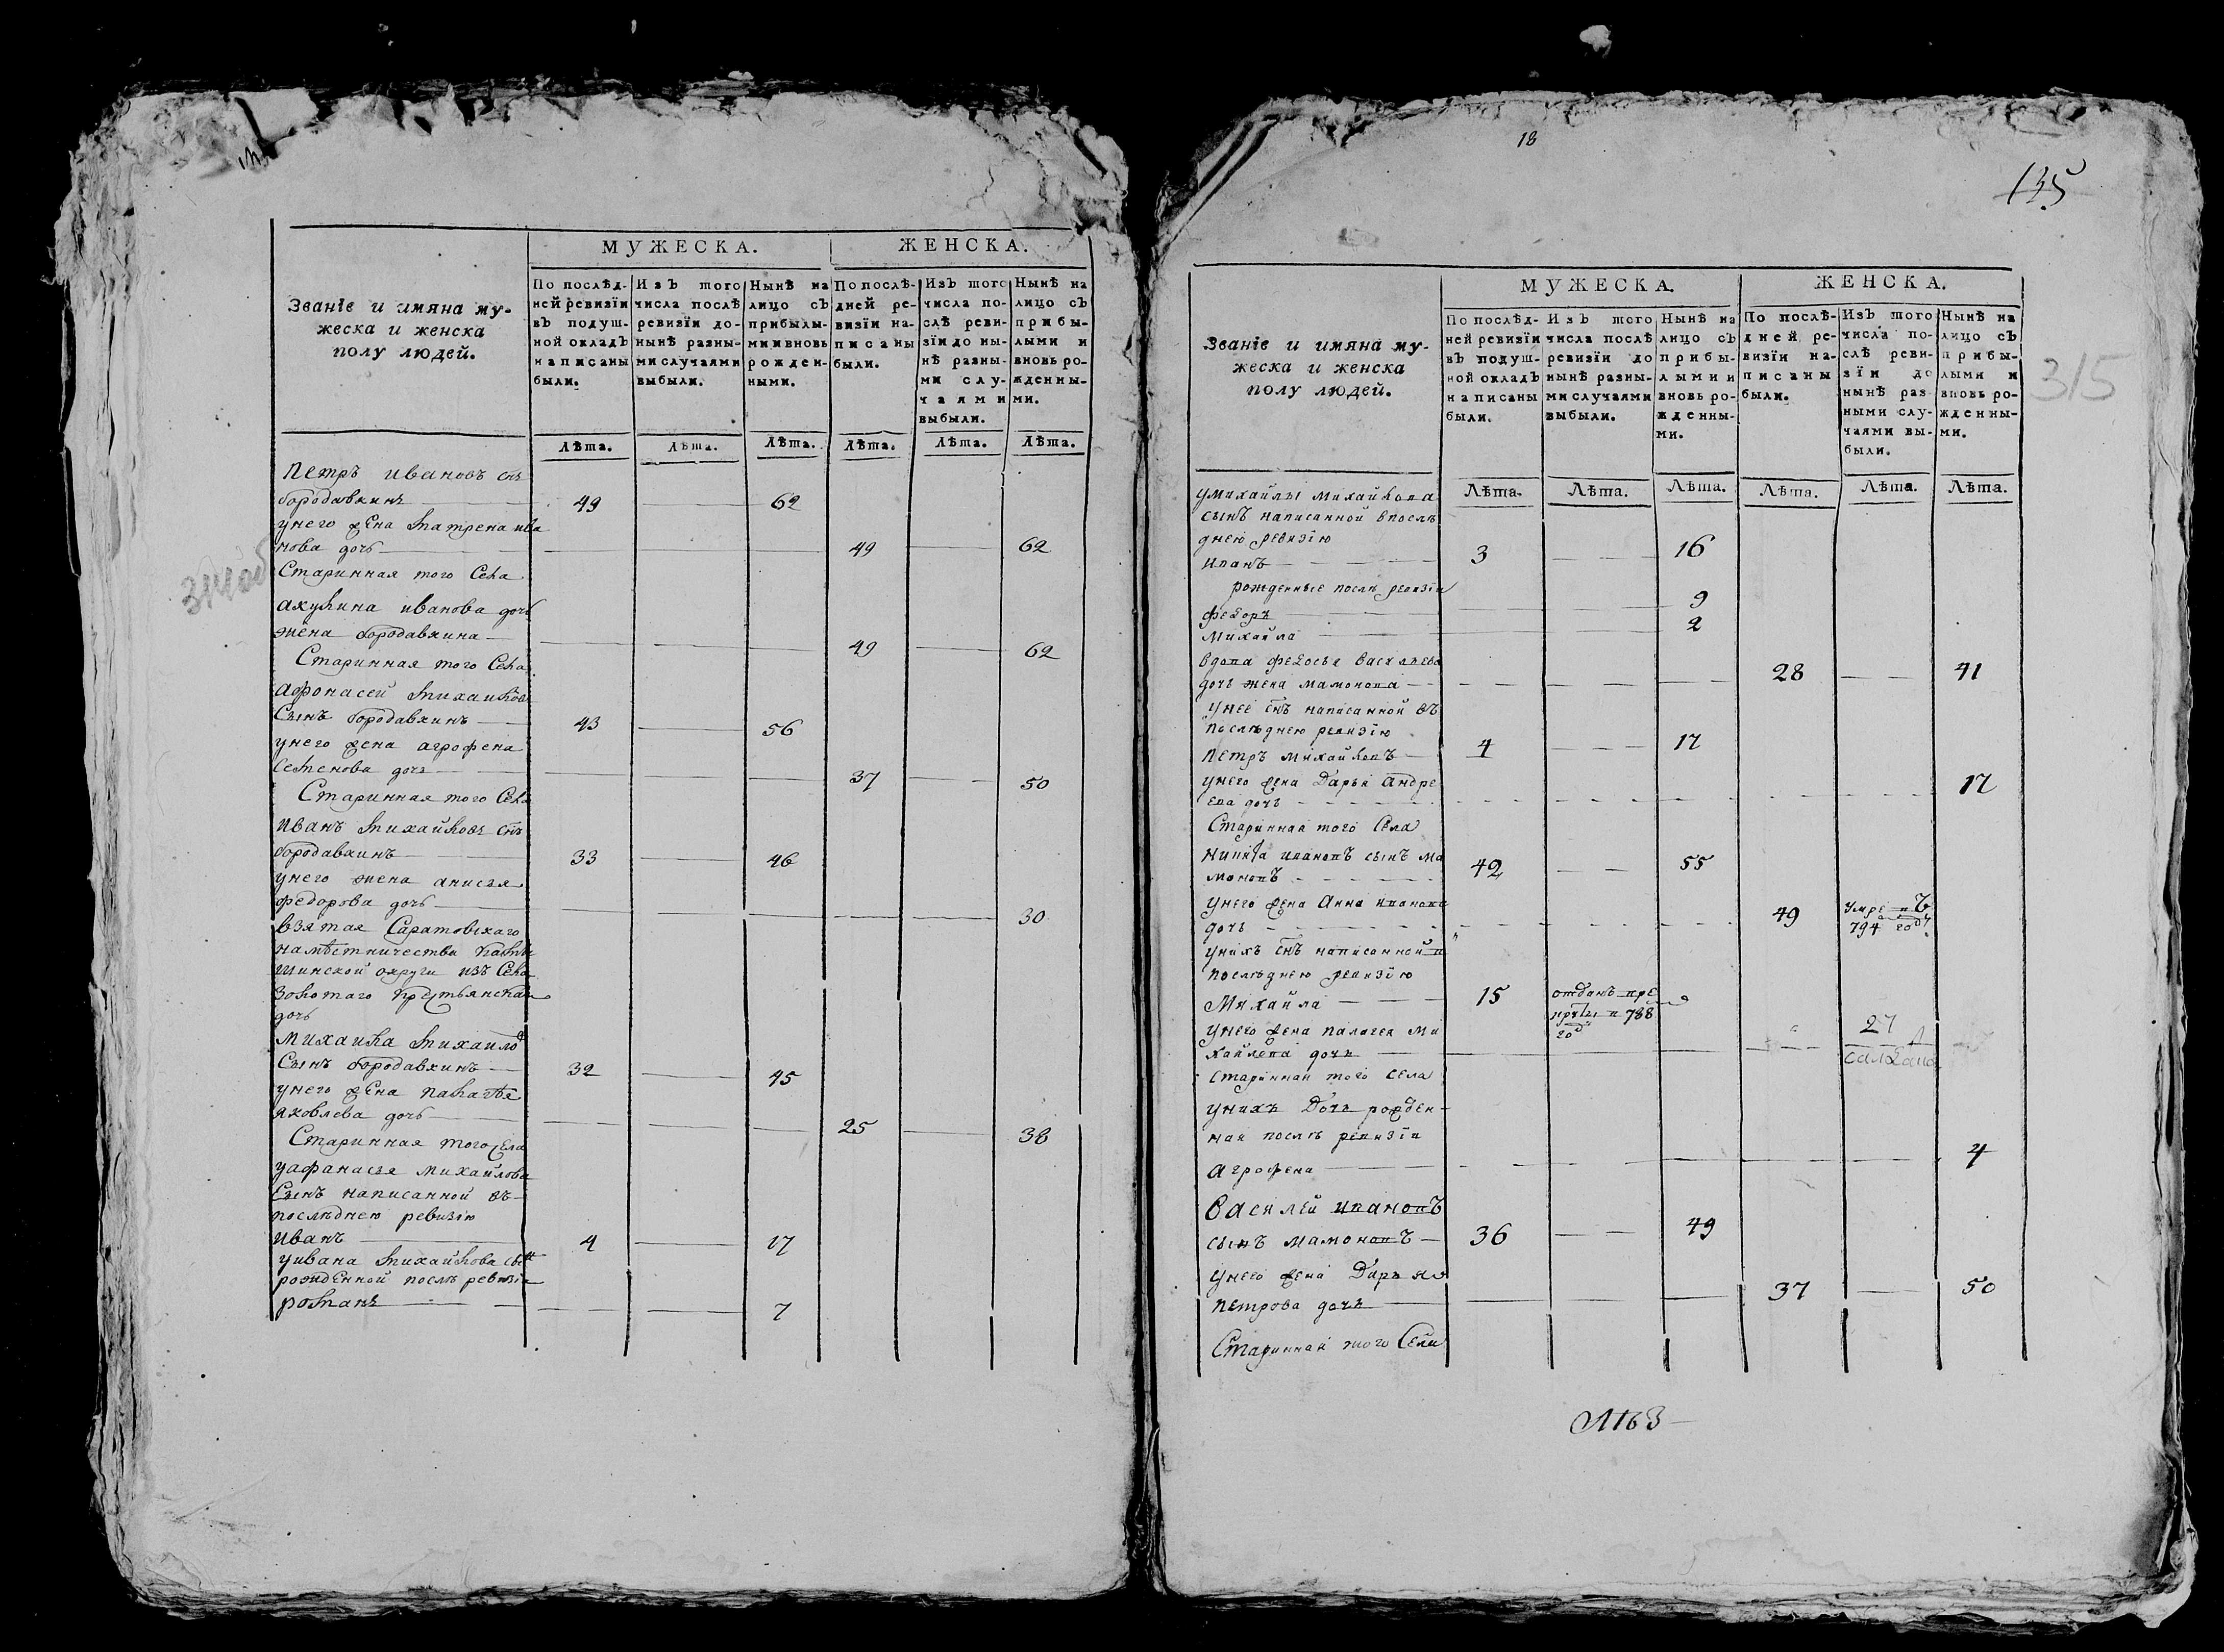 МУЖЕСКА. ЖЕНСКА.
Званіе и имяна му-
жеска и женска
полу людей.
По послѣд-
ней ревизіи
въ подуш-
ной окладъ
написаны
были.
Изъ того
числа послѣ
ревизіи до-
нынѣ разны-
ми случаями
выбыли.
Нынѣ на
лицо съ
прибылы-
ми и вновь
рожден-
ными.
По послѣ-
дней ре-
визіи на-
писаны
были.
Изъ того
числа по-
слѣ реви-
зіи до ны-
нѣ разны-
ми слу-
чаями
выбыли.
Нынѣ на
лицо съ
прибы-
лыми и
вновь ро-
жденны-
ми.
Лѣта. Лѣта. Лѣта. Лѣта. Лѣта. Лѣта.
Петръ Ивановъ снъ
бородавкинъ 49 62
унего жена матрена ива
нова дочь 49 62
Старинная того села
акулина иванова дочь
жена бородавкина 49 62
Старинная того села
афонасей михайловъ
сынъ бородавкинъ 43 56
унего жена агрофена
семенова дочь 37 50
Старинная того села
иванъ михайловъ снъ
бородавкинъ 33 46
унего жена анисья
федорова дочь 30
взятая Саратовскаго
намѣстничества камы
шинской округи изъ села
золотаго крестьянская
дочь
михаила михаилов
сынъ бородавкинъ 32 45
унего жена палагѣя
яковлева дочь 25 38
Старинная того села
уафанасья михайлова
сынъ написанной въ
послѣднею ревизію
иванъ 4 17
уивана михайлова снъ
рожденной послѣ ревизіи
романъ 7
18
135
315
МУЖЕСКА. ЖЕНСКА.
Званіе и имяна му-
жеска и женска
полу людей.
По послѣд-
ней ревизіи
въ подуш-
ной окладъ
написаны
были.
Изъ того
числа послѣ
ревизіи до
нынѣ разны-
ми случаями
выбыли.
Нынѣ на
лицо съ
прибы-
лыми и
вновь ро-
жденны-
ми.
По послѣ-
дней ре-
визіи на-
писаны
были.
Изъ того
числа по-
слѣ реви-
зіи до
нынѣ раз
ными слу-
чаями вы-
были.
Нынѣ на
лицо съ
прибы-
лыми и
вновь ро-
жденны-
ми.
Лѣта. Лѣта. Лѣта. Лѣта. Лѣта. Лѣта.
умихайлы михайлова
сынъ написанной впослѣ
днею ревизію
иванъ 3 16
рожденные послѣ ревизіи
федоръ 9
михайла 2
вдова федосья васильева
дочь жена мамонова 28 41
унее снъ написанной въ
послѣднею ревизію
петръ михайловъ 4 17
унего жена дарья андре
ева дочь 17
Старинная того села
никита ивановъ сынъ ма
моновъ 42 55
унего жена анна иванова
дочь 49 умре въ
794 году
унихъ снъ написанной в
послѣднею ревизію
Михайла 15 отданъ вре
круты в 788
году
унего жена палагея ми
хайлева дочь 27
Старинная того села
унихъ дочь рожден-
ная послѣ ревизіи
агрофена 4
Василей ивановъ
сынъ мамоновъ 36 49
унего жена дарья
петрова дочь 37 50
Старинная того села